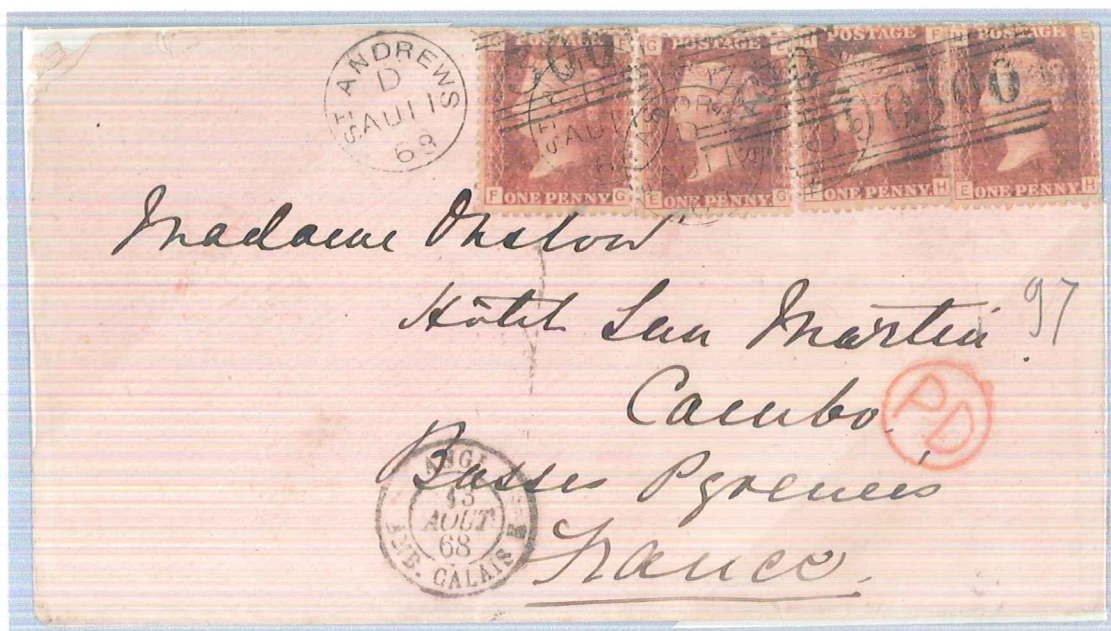 ST. ANDREWS
D
AU 11
68
POSTAGE
ONE PENNY
F G
POSTAGE
ONE PENNY
E G
POSTAGE
ONE PENNY
F H
ONE PENNY
E H
300
Madame Onslow
Hôtel San Martin
97
Cambo
PD
Basses Pyrenees
France.
ANGL.
13
AOUT
68
AMB. CALAIS